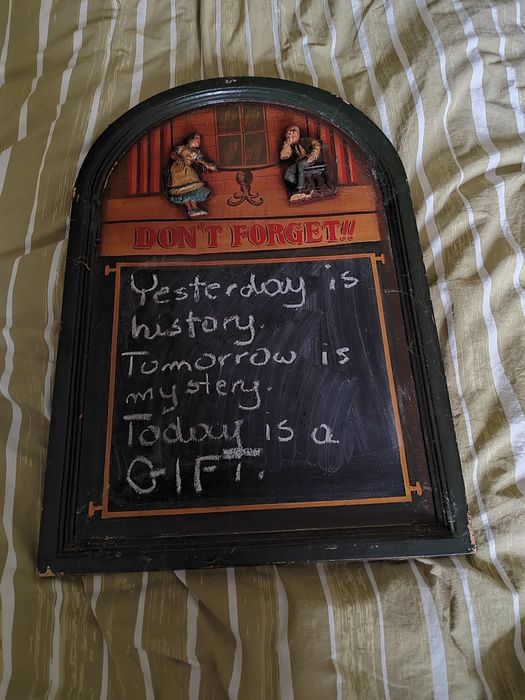 DON'T FORGET!!
Yesterday is
history.
Tomorrow is
mystery.
Today is a
GIFT.